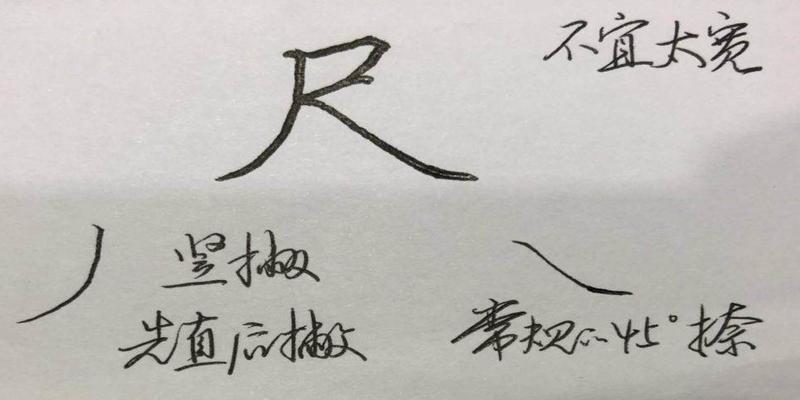 不宜太宽
尺
竖撇
先直后撇
常规的45°捺